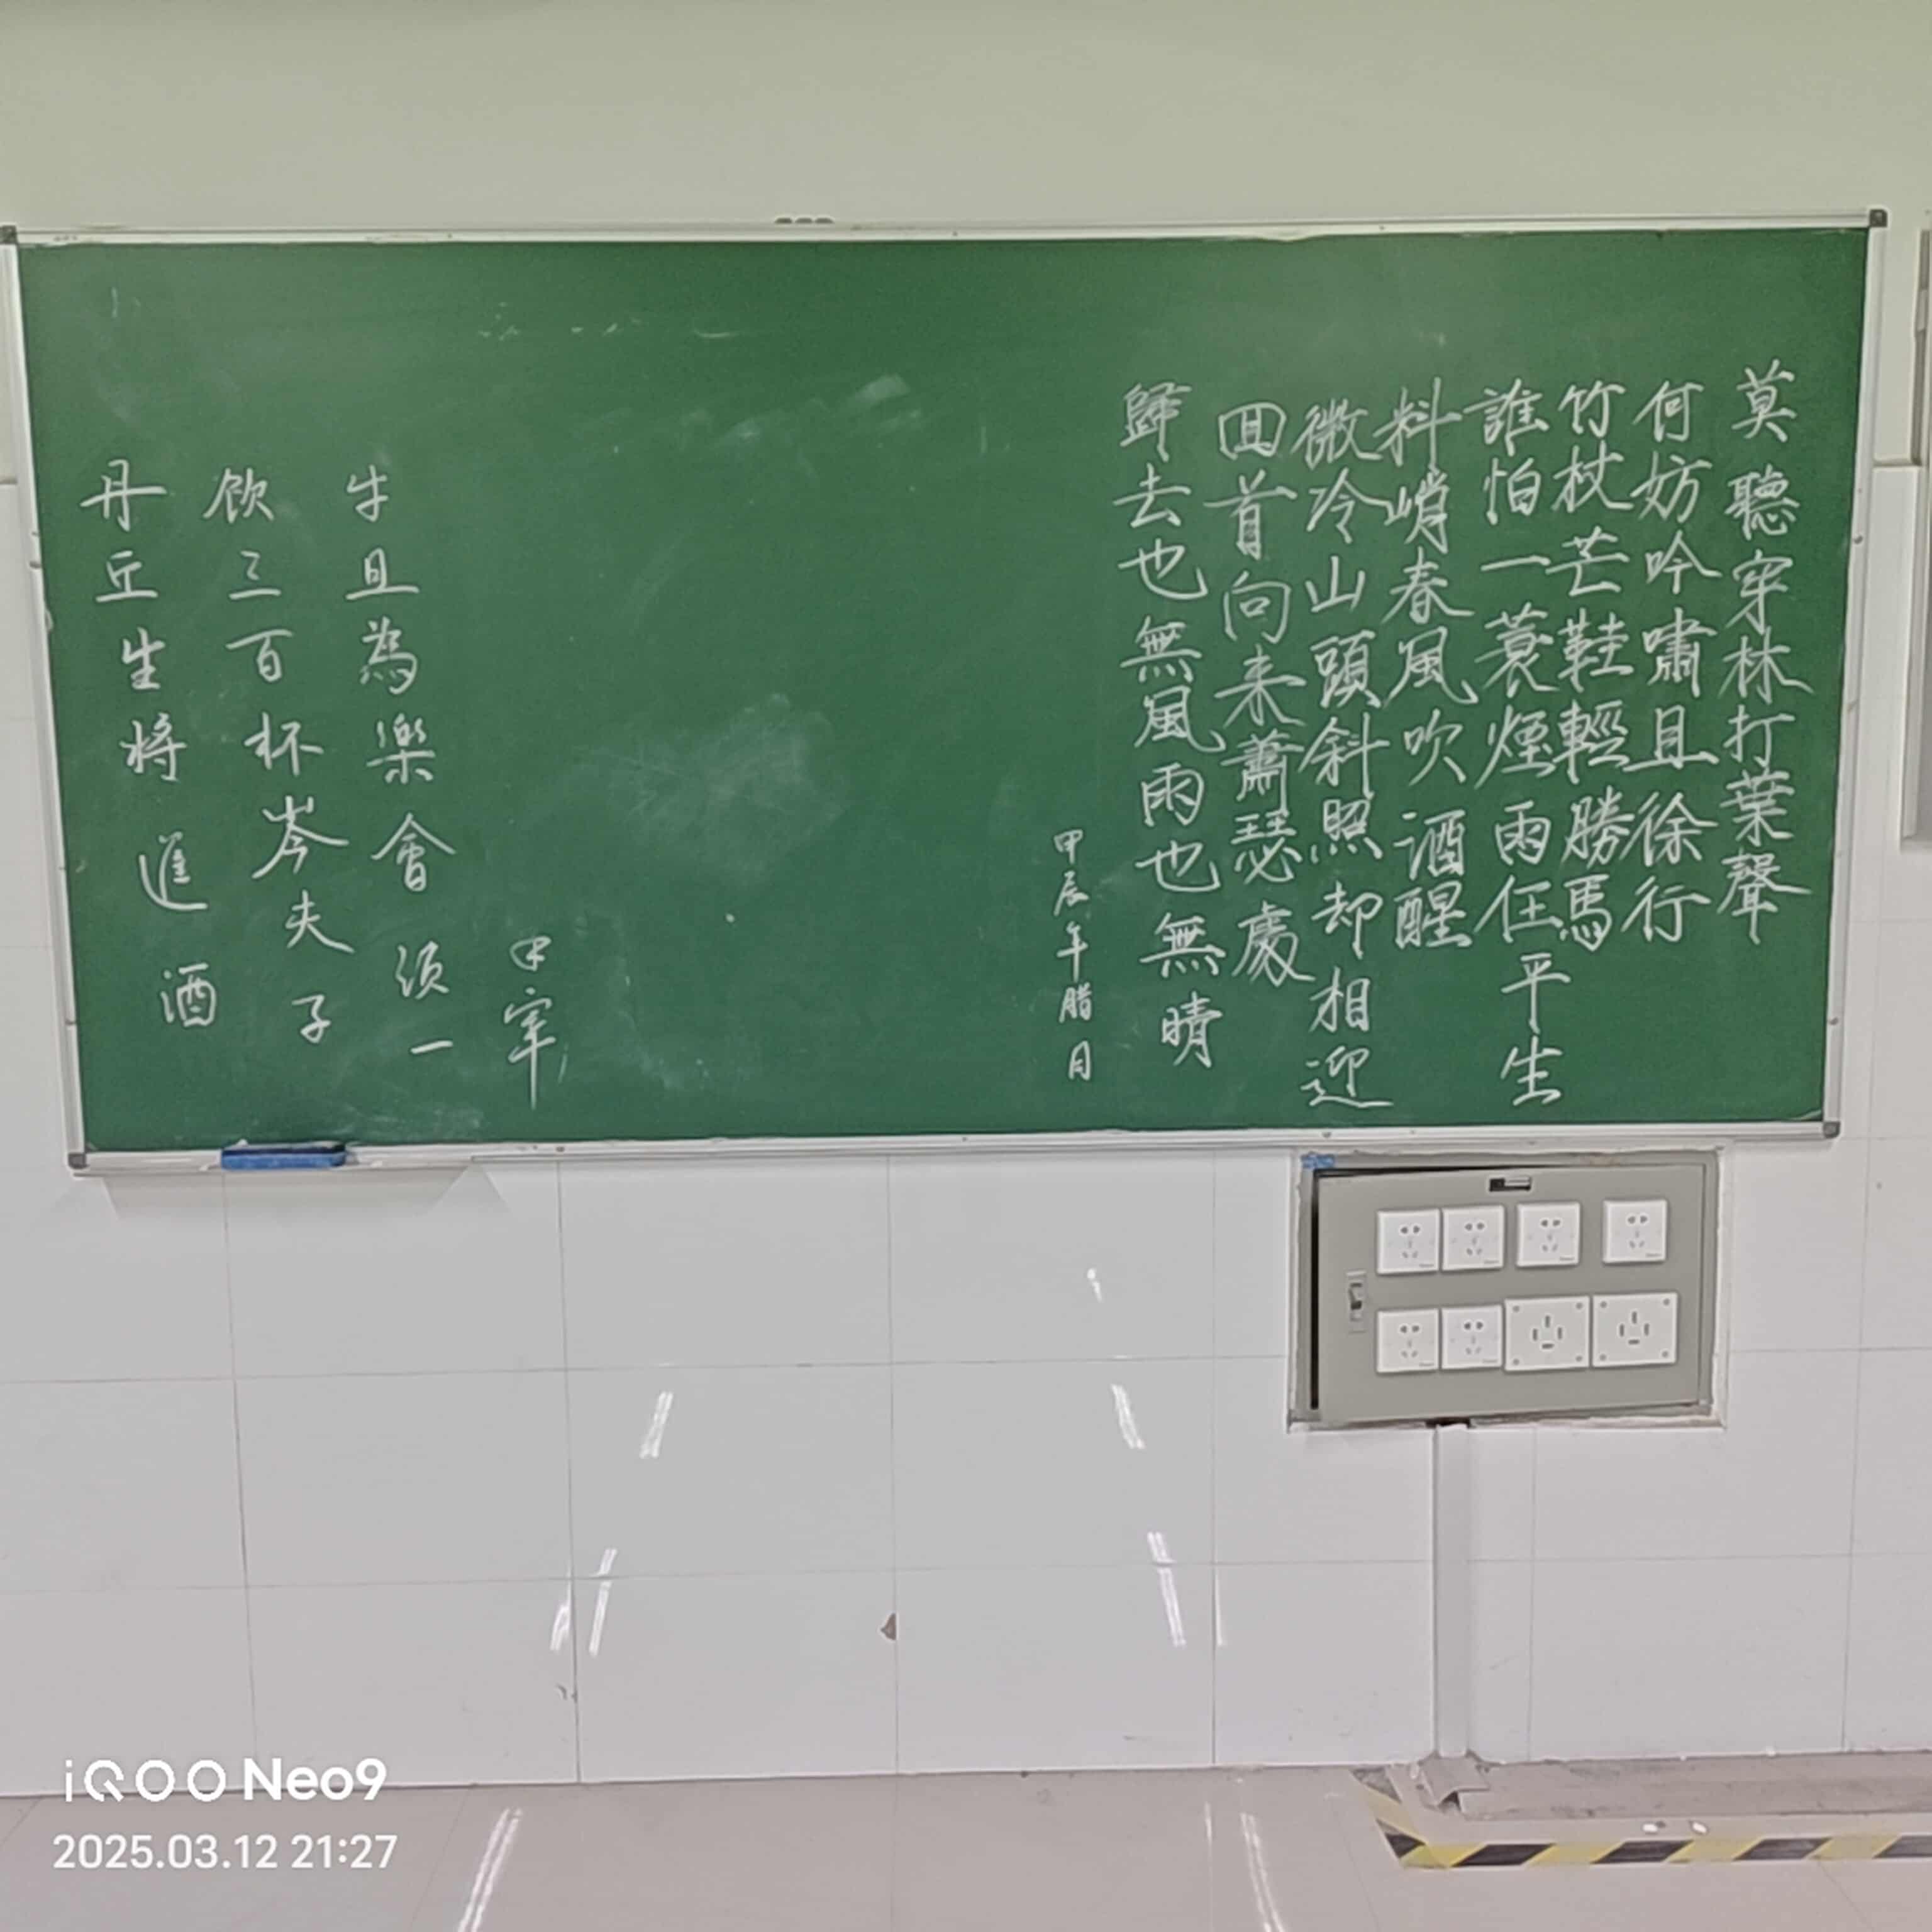 莫聽穿林打葉聲
何妨吟嘯且徐行
竹杖芒鞋輕勝馬
誰怕一蓑煙雨任平生
料峭春風吹酒醒
微冷山頭斜照却相迎
回首向来蕭瑟處
歸去也無風雨也無晴
甲辰年腊月
宰
牛且為樂會須一
飲三百杯岑夫子
丹丘生将進酒
iQOO Neo9
2025.03.12 21:27